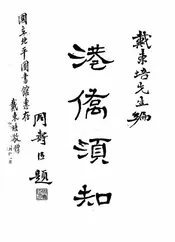 戴東培先生編
港僑須知
周壽臣題
國立北平圖書館惠存
戴東培敬贈